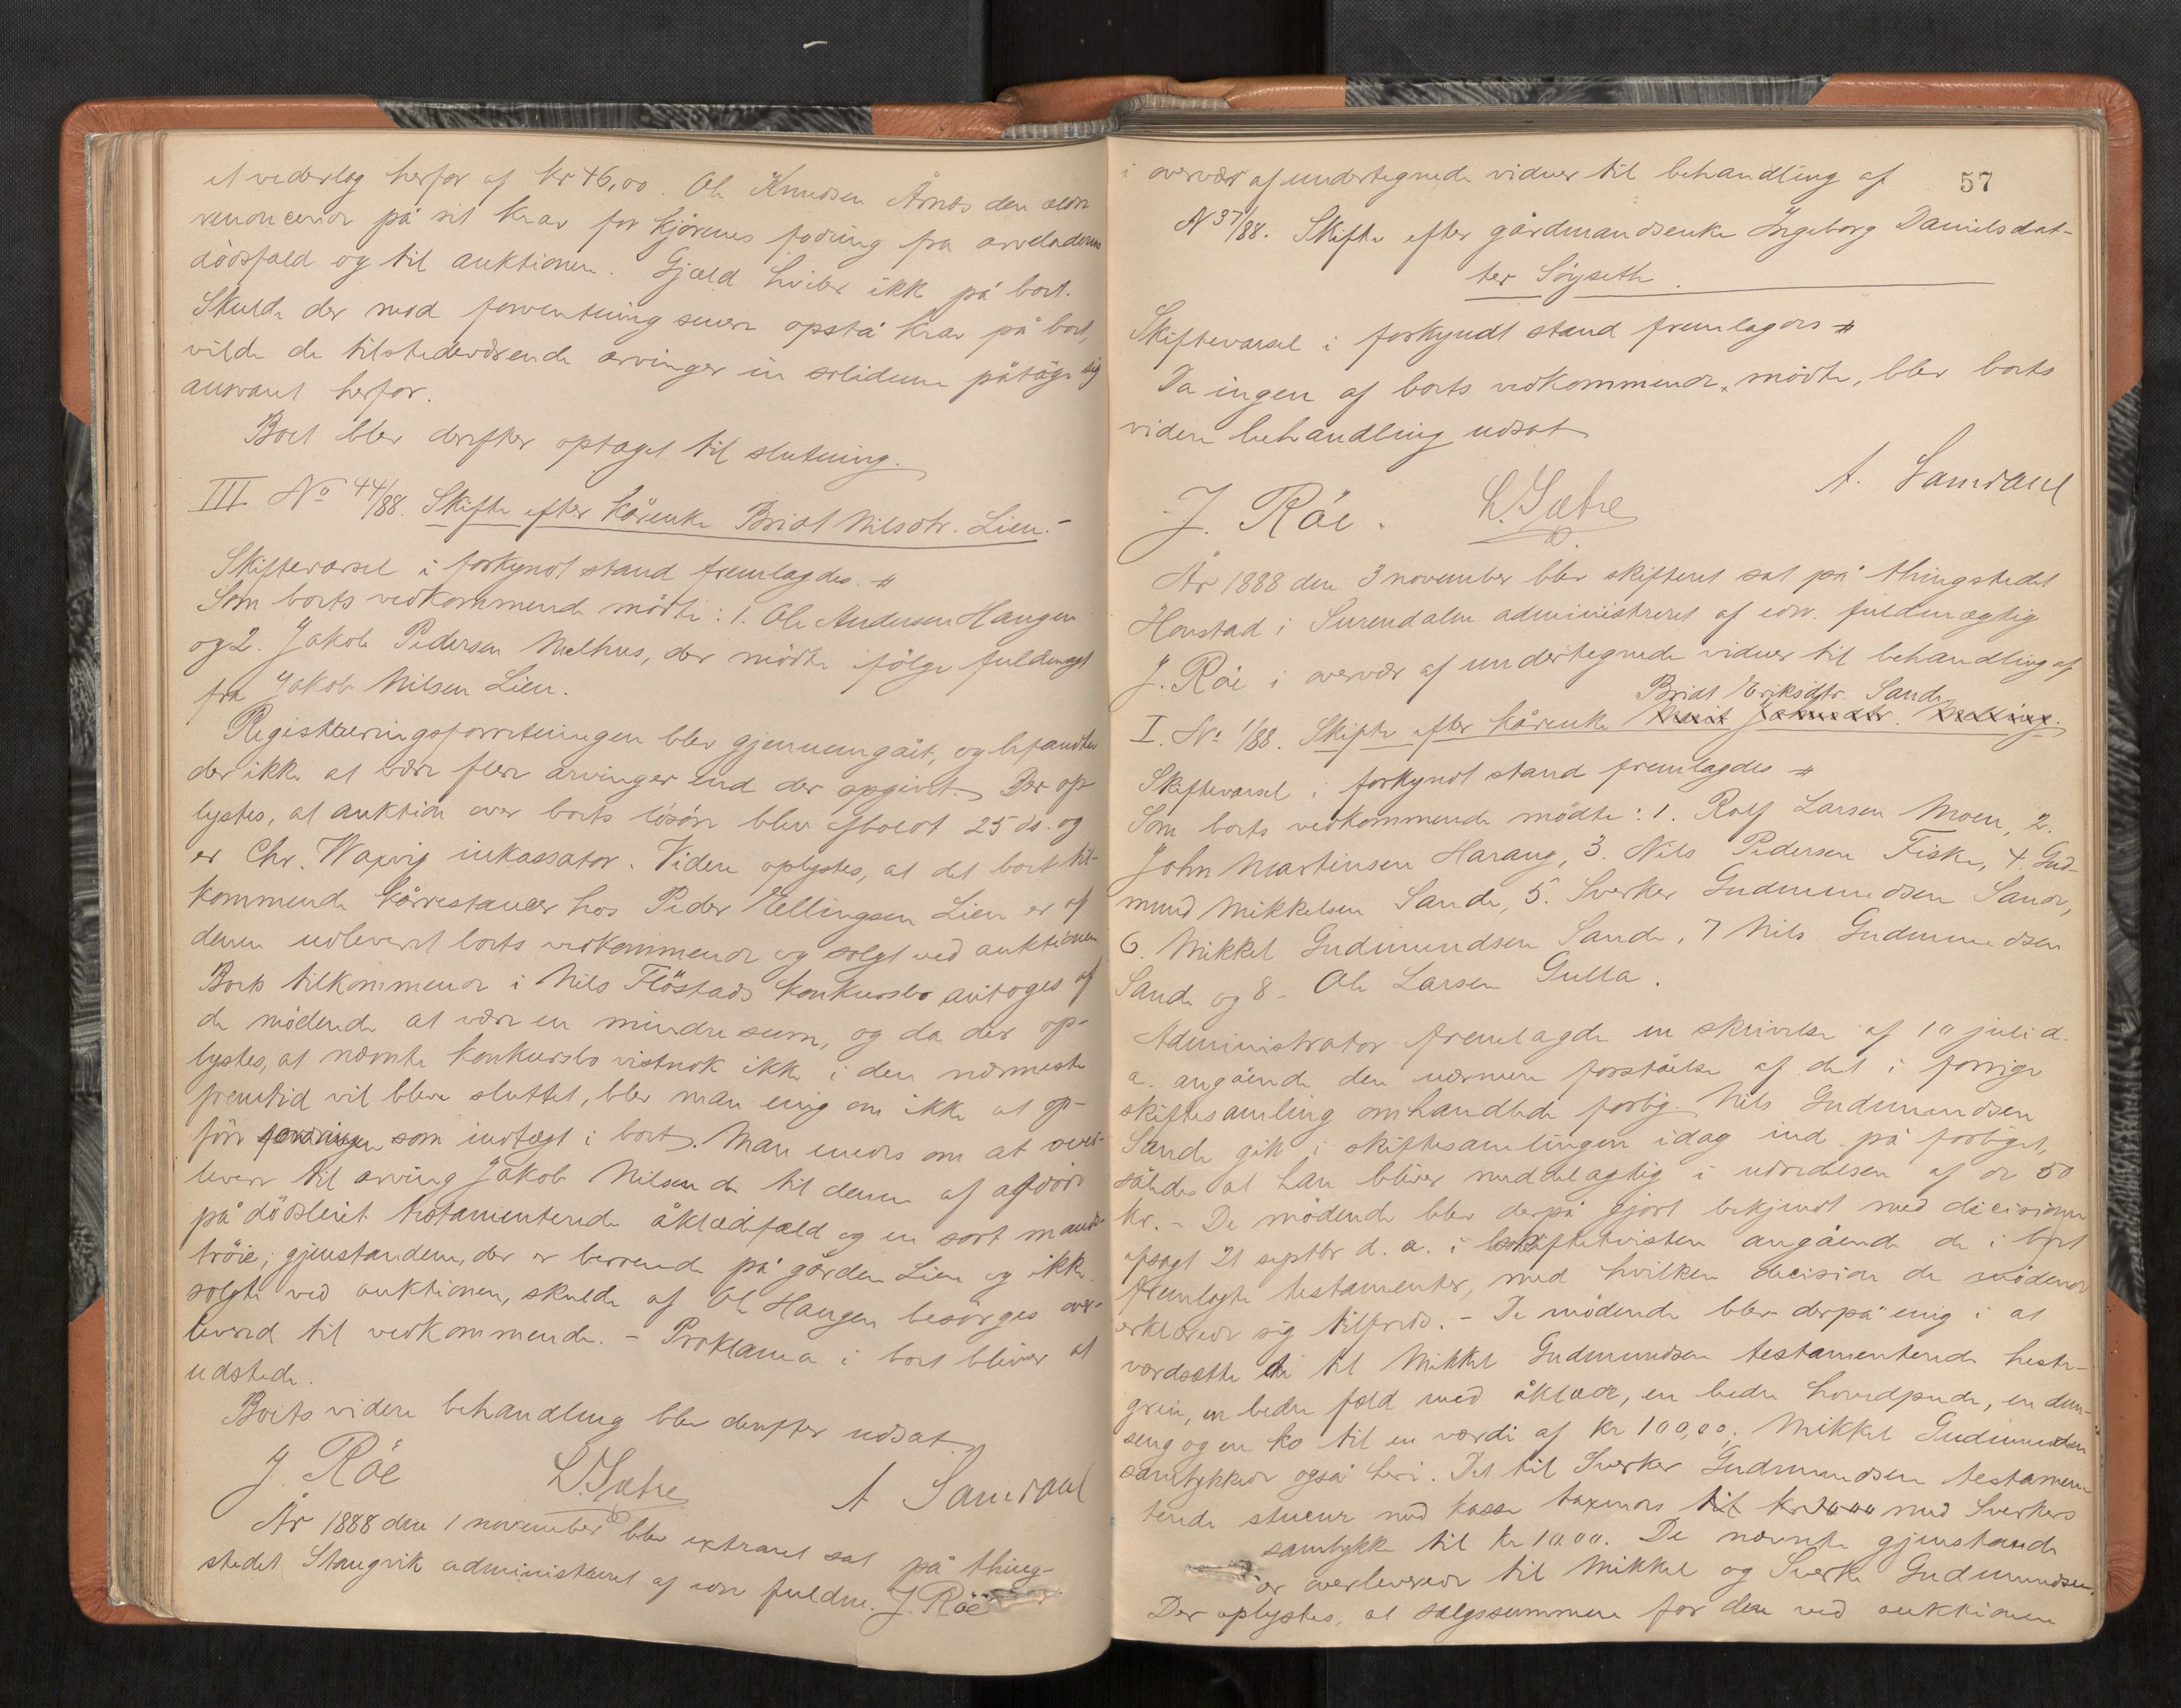 et vederlag herfor af kr 46,00. Ole Knudsen Årnes den ældre
renoncerede på sit krav for kjörenes fodring fra arveladerens
dödsfald og til auktionen. Gjæld hviler ikke på boet.
Skulde der mod forventning senere opstå krav på boet,
vilde de tilstedeværende arvinger in solidum påtage sig
ansvaret herfor.
Boet blev derefter optaget til slutning.
III No 44/88. Skifte efter kårenke Brit Nilsdtr. Lien.-
Skiftevarsel i forkyndt stand fremlagdes #
Som boets vedkommende mödte: 1. Ole Andersen Haugen
og 2. Jakob Pedersen Melhus, der mödte ifölge fuldmagt
fra Jakob Nilsen Lien.
Registreringsforretningen blev gjennemgået, og befandtes
der ikke at være flere arvinger end der opgivet. Der op-
lystes, at auktion over boets lösöre blev afholdt 25 ds. og
er Chr. Waxvig inkassator. Videre oplystes, at det boet til-
kommende kårrestancer hos Peder Ellingsen Lien er af
denne udleveret boets vedkommende og solgt ved auktionen
Boets tilkommende i Nils Flöstads konkursbo antoges af
de mödende at være en mindre sum, og da der op-
lystes, at nævnte konkursbo vistnok ikke i den nærmeste
fremtid vil blive sluttet, blev man enig om ikke at op-
före fordringen som indtægt i boet. Man enedes om at over-
levere til arving Jakob Nilsen de til denne af afdöde
på dödsleiet testamenterede åklædfæld og en sort mands-
tröie; gjenstandene, der er beroende på gården Lien og ikke
solgte ved auktionen, skulde af Ole Haugen besörges over-
leveret til vedkommende. - Proklama i boet bliver at
udstede.
Boets videre behandling blev derefter udsat.
J. Röe L. Sætre A Samdahl
År 1888 den 1 november blev extraret sat på thing-
stedet Stangvik administreret af edsv fuldm. J. Röe
57
i overvær af undertegnede vidner til behandling af
N 37/88. Skifte efter gårdmandsenke Ingeborg Danielsdat-
ter Söyseth.
Skiftevarsel i forkyndt stand fremlagdes #
Da ingen af boets vedkommende mödte, blev boets
videre behandling udsat
J. Röe. L. Sætre A. Samdahl
År 1888 den 3 november blev skifteret sat på thingstedet
Honstad i Surendalen administreret af edsv. fuldmægtig
J. Röe i overvær af undertegnede vidner til behandling af
Brit Eriksdtr. Sande
I. No 1/88. Skifte efter kårenke
Skiftevarsel i forkyndt stand fremlagdes #
Som boets vedkommende mödte: 1. Rolf Larsen Moen, 2.
John Martinsen Harang, 3. Nils Pedersen Fiske, 4. Gud-
mund Mikkelsen Sande, 5. Sverker Gudmundsen Sande,
6. Mikkel Gudmundsen Sande, 7 Nils Gudmundsen
Sande og 8- Ole Larsen Gulla.
Administrator fremlagde en skrivelse af 10 juli d.
a. angående den nærmere forståelse af det i forrige
skiftesamling omhandlede forlig. Nils Gudmundsen
Sande gik i skiftesamlingen idag ind på forliget,
således at han bliver meddelagtig i udredelsen af de 50
kr. - De mödende blev derpå gjort bekjendt med decisionen
afsagt 21 septbr d. a. i skiftetvisten angående de i boet
fremlagte testamenter, med hvilken decision de mödende
erklærede sig tilfreds. - De mödende blev derpå enig i at
værdsætte de til Mikkel Gudmundsen testamenterede heste-
grein, en bedre fæld med åklæde, en bedre hovedpude, en dun-
seng og en ko til en værdi af kr 100,00. Mikkel Gudmundsen
samtykkede også heri. Det til Sverker Gudmundsen testamen
terede stueur med kasse taxeredes med Sverkers
samtykke til kr 10.00. De nævnte gjenstande
er overleverede til Mikkel og Sverke Gudmundsen.
Der oplystes, at salgssummen for den ved auktionen